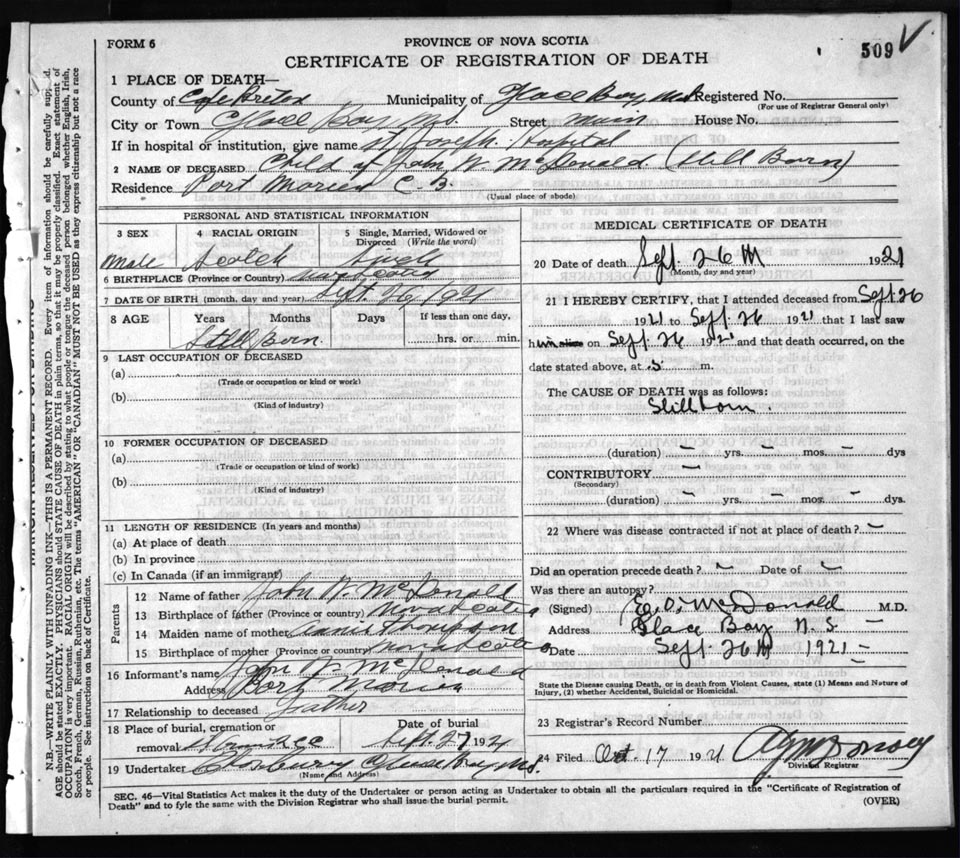 FORM 6
PROVINCE OF NOVA SCOTIA
509
CERTIFICATE OF REGISTRATION OF DEATH
1 PLACE OF DEATH—
County of Cape Breton Municipality of Glace Bay, N.S. Registered No.
(For use of Registrar General only)
City or Town Glace Bay, N.S. Street Main House No.
If in hospital or institution, give name St Joseph Hospital
2 NAME OF DECEASED Child of John W. McDonald. (Still Born)
Residence Port Morien C-B.
(Usual place of abode)
PERSONAL AND STATISTICAL INFORMATION
3 SEX
4 RACIAL ORIGIN
5 Single, Married, Widowed or Divorced (Write the word)
Male Scotch Single
6 BIRTHPLACE (Province or Country) Nova Scotia
7 DATE OF BIRTH (month, day and year) Sept. 26 1921
8 AGE Years Months Days If less than one day,
Still Born hrs. or min.
9 LAST OCCUPATION OF DECEASED
(a)
(Trade or occupation or kind or work)
(b)
(Kind of industry)
10 FORMER OCCUPATION OF DECEASED
(a)
(Trade or occupation or kind of work)
(b)
(Kind of industry)
11 LENGTH OF RESIDENCE (In years and months)
(a) At place of death
(b) In province
(c) In Canada (if an immigrant)
Parents
12 Name of father John W. McDonald
13 Birthplace of father (Province or country) Nova Scotia
14 Maiden name of mother Annie Thompson
15 Birthplace of mother (Province or country) Nova Scotia
16 Informant's name John W. McDonald
Address Port Morien
17 Relationship to deceased Father
18 Place of burial, cremation or removal
Date of burial
Sept. 27 1921
19 Undertaker Glace Bay N.S.
(Name and Address)
MEDICAL CERTIFICATE OF DEATH
20 Date of death Sept. 26 1921
(Month, day and year)
21 I HEREBY CERTIFY, that I attended deceased from Sept 26
1921 to Sept. 26 1921 that I last saw
h on Sept. 26 1921 and that death occurred, on the
date stated above, at 5 m.
The CAUSE OF DEATH was as follows:
Stillborn
(duration) — yrs. — mos. — dys
CONTRIBUTORY —
(Secondary)
(duration) — yrs. — mos. — dys.
22 Where was disease contracted if not at place of death? —
Did an operation precede death? — Date of —
Was there an autopsy?
(Signed) E. O. McDonald M.D.
Address Glace Bay N. S. —
Date Sept. 26 1921 —
State the Disease causing Death, or in death from Violent Causes, state (1) Means and Nature of
Injury, (2) whether Accidental, Suicidal or Homicidal.
23 Registrar's Record Number
24 Filed Oct 17 1921
Division Registrar
SEC. 46—Vital Statistics Act makes it the duty of the Undertaker or person acting as Undertaker to obtain all the particulars required in the "Certificate of Registration of
Death" and to fyle the same with the Division Registrar who shall issue the burial permit.
(OVER)
MARGIN RESERVED FOR BINDING
N.B.—WRITE PLAINLY WITH UNFADING INK—THIS IS A PERMANENT RECORD. Every item of information should be carefully supplied.
AGE should be stated EXACTLY. PHYSICIANS should STATE CAUSE OF DEATH in plain terms, so that it may be properly classified. Exact statement of
OCCUPATION is very important. RACIAL ORIGIN will be described by stating to what people or tongue the deceased person belonged whether English, Irish,
Scotch, French, German, Russian, Ruthenian, etc. The terms "AMERICAN" OR "CANADIAN" MUST NOT BE USED as they express citizenship but not a race
or people. See instructions on back of Certificate.